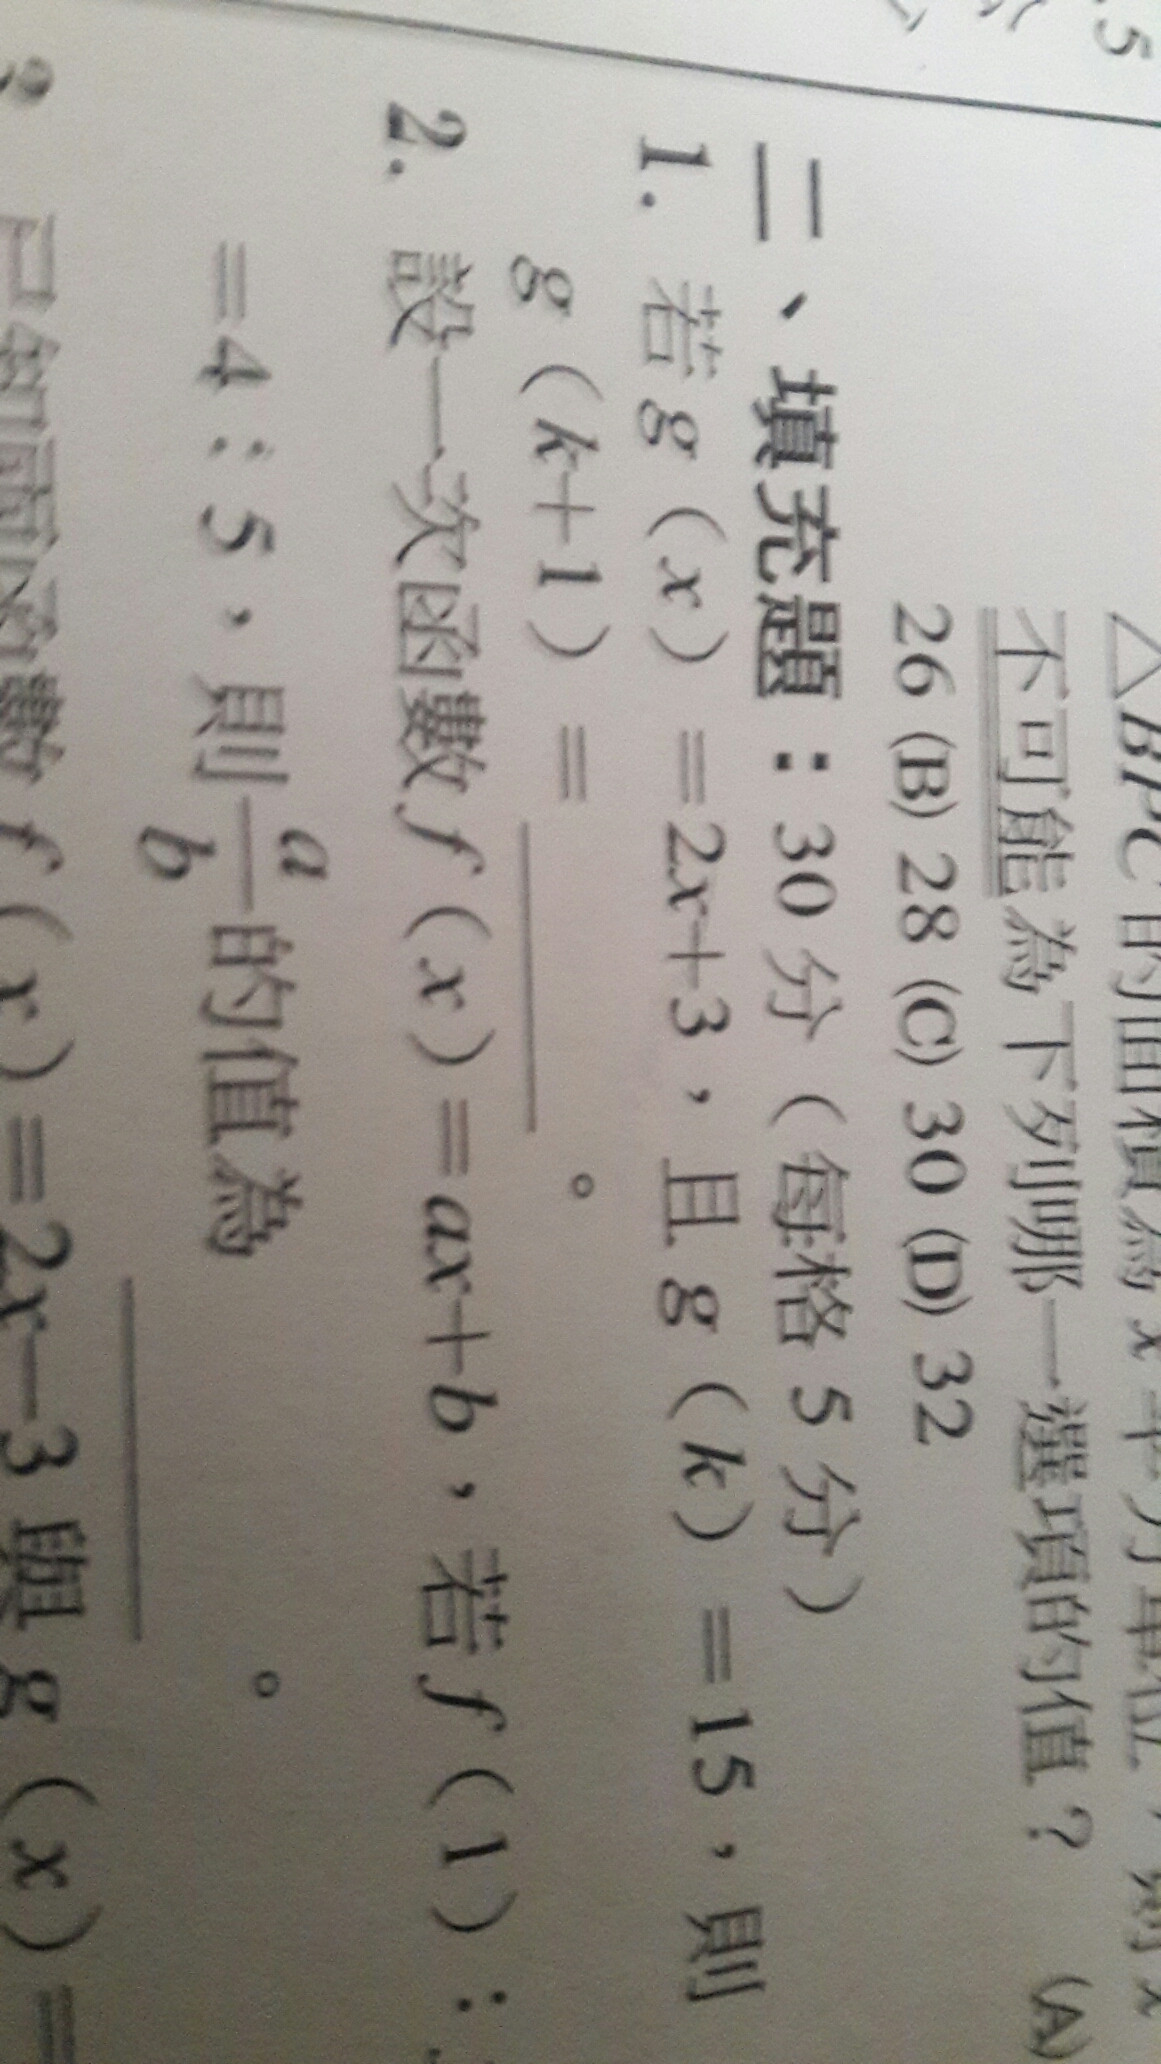 △BPC 的面積為 x 平方單位，則 x
不可能為下列哪一選項的值？ (A)
26 (B) 28 (C) 30 (D) 32
二、填充題：30 分（每格 5 分）
1. 若 g（x）=2x+3，且 g（k）=15，則
g（k+1）=＿＿＿。
2. 設一次函數 f（x）=ax+b，若 f（1）：
=4：5，則 a/b 的值為＿＿＿。
已知兩函數 f（x）=2x−3 與 g（x）=